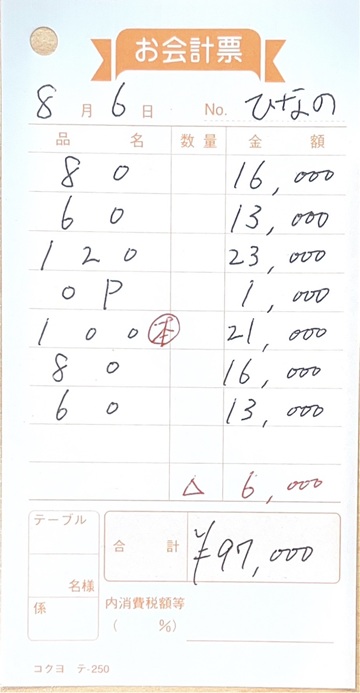 お会計票
8月6日 No. ひなの
品名 数量 金額
80 16,000
60 13,000
120 23,000
OP 1,000
100 21,000
80 16,000
60 13,000
△ 6,000
テーブル
名様
係
合計 ¥97,000
内消費税額等
( %)
コクヨ テ-250